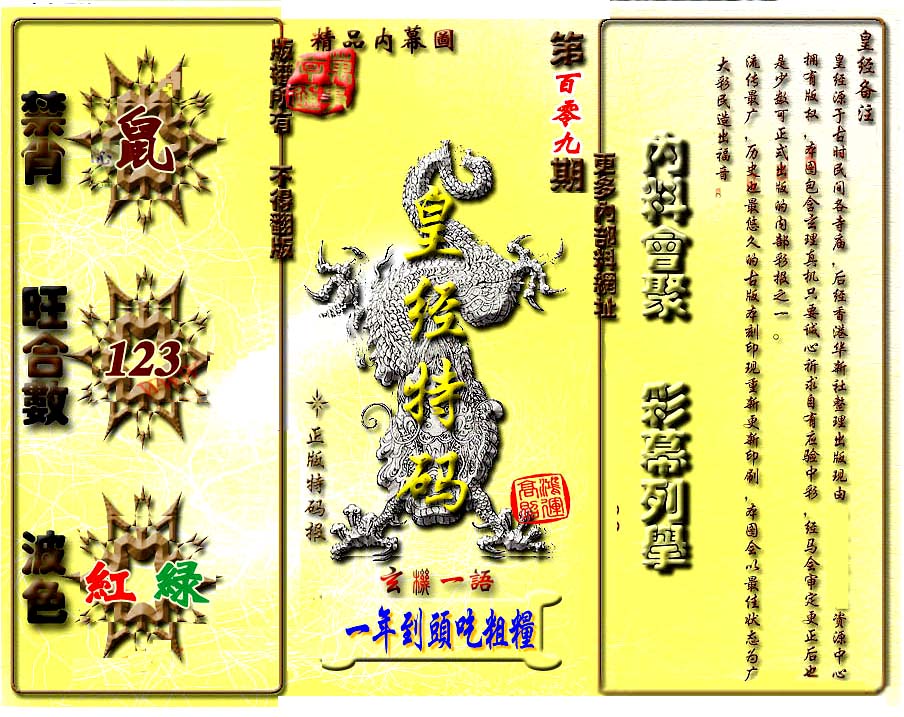 精品內幕圖
第百零九期
版權所有 不得翻版
更多內部料網址
禁肖
鼠
旺合數
123
波色
紅 綠
皇经特码
正版特码报
鴻運高照
玄機一語
一年到頭吃粗糧
內料會聚 彩幕列舉
皇经备注
皇经源于古时民间各寺庙，后经香港华新社整理出版现由 资源中心
拥有版权，本图包含玄理真机只要诚心祈求自有应验中彩，经马会审定更正后也
是少数可正式出版的内部彩报之一。
流传最广，历史也最悠久的古版本刻印现重新更新印刷，本图会以最佳状态为广
大彩民造出福音